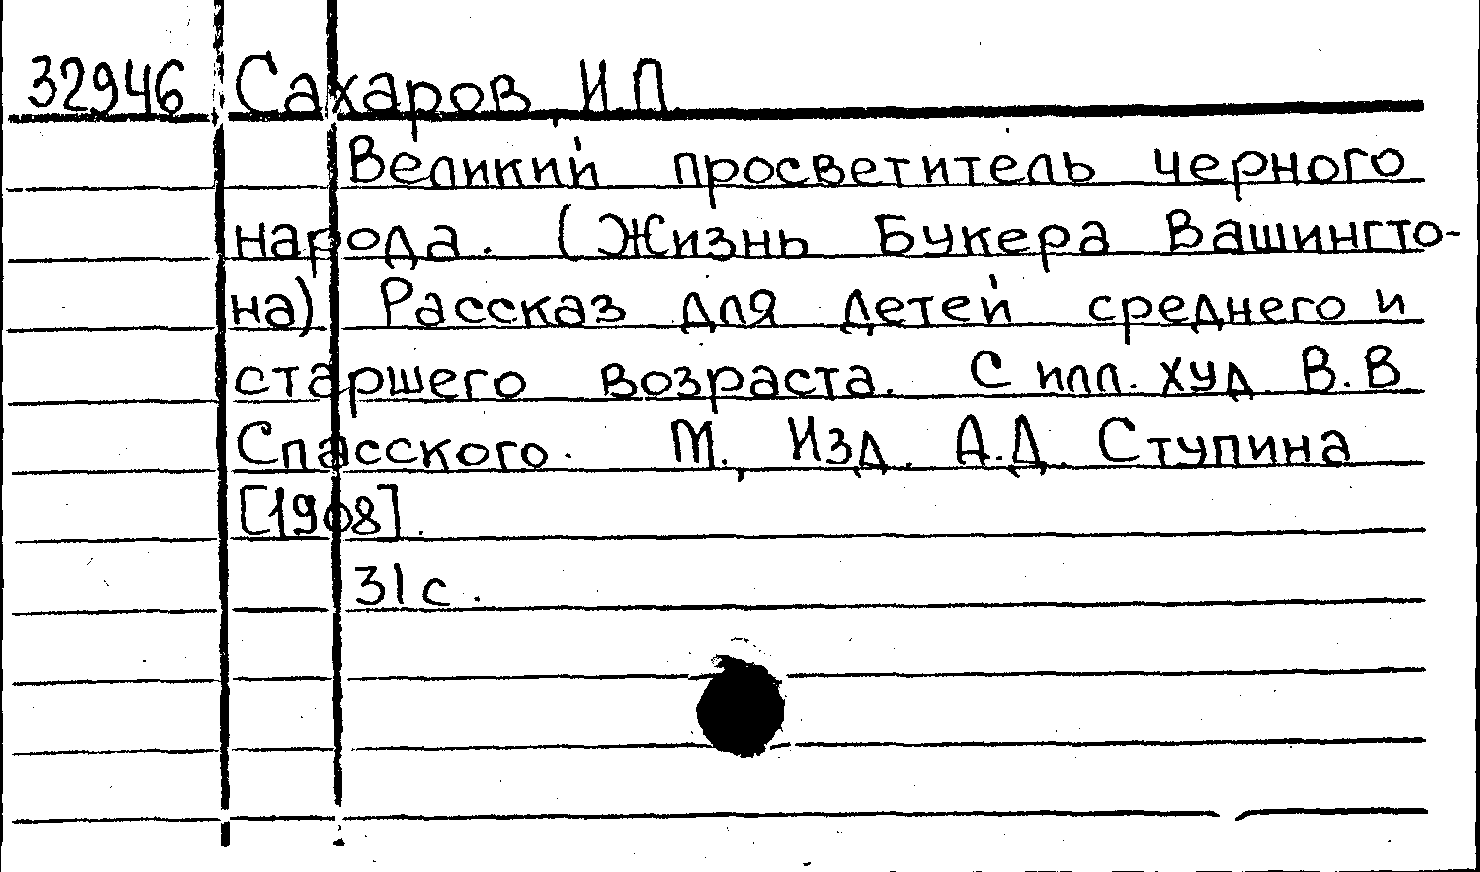 32946 Сахаров, И.П.
Великий просветитель черного
народа. (Жизнь Букера Вашингто-
на) Рассказ для детей среднего и
старшего возраста. С илл. худ. В.В.
Спасского. М., Изд. А.Д. Ступина
[1908].
31 с.